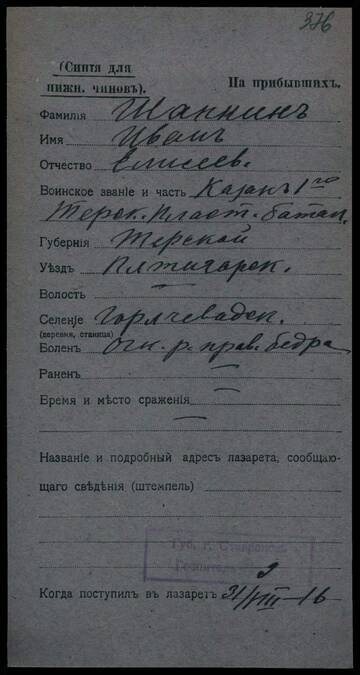 376
(Синтя для
нижн. чиновъ).
На прибывшихъ.
Фамилія Шаннинъ
Имя Иванъ
Отчество Елисеев.
Воинское званіе и часть Казакъ 1го
Терск. Пласт. батал.
Губернія Терской
Уѣздъ Пятигорск.
Волость
Селеніе Горячеводск.
(деревня, станица)
Боленъ огн. р. прав. бедра
Раненъ
Время и мѣсто сраженія
Названіе и подробный адресъ лазарета, сообщаю-
щаго свѣдѣнія (штемпель)
Губ. г. Ставрополь
Госпиталь
Когда поступилъ въ лазаретъ 31/VIII-16